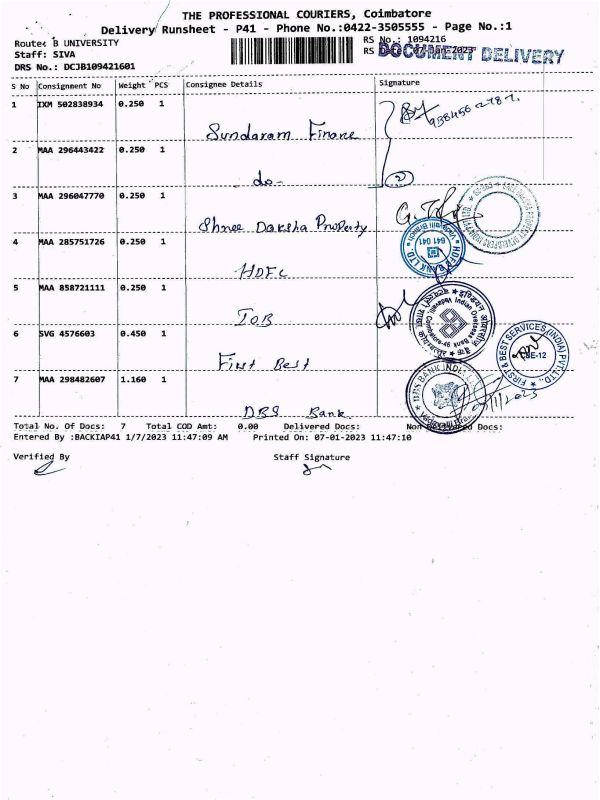 THE PROFESSIONAL COURIERS, Coimbatore
Delivery Runsheet - P41 - Phone No.:0422-3505555 - Page No.:1
Route: B UNIVERSITY
RS No.: 1094216
Staff: SIVA
RS
DOCUMENT DELIVERY
DRS No.: DCJB109421601
S No Consignment No Weight PCS Consignee Details Signature
1 IXM 502838934 0.250 1
Sundaram Finance
2 MAA 296443422 0.250 1
do-
2
3 MAA 296047770 0.250 1
Shree Daksha Property
4 MAA 285751726 0.250 1
HDFC
HDFC BANK LTD
641 041
5 MAA 858721111 0.250 1
IOB
Indian Overseas Bank
6 SVG 4576603 0.450 1
First Best
FIRST & BEST SERVICES (INDIA) PVT LTD.
CBE-12
7 MAA 298482607 1.160 1
DBS Bank
DBS BANK INDIA
Total No. Of Docs: 7 Total COD Amt: 0.00 Delivered Docs: Non Delivered Docs:
Entered By :BACKIAP41 1/7/2023 11:47:09 AM Printed On: 07-01-2023 11:47:10
Verified By Staff Signature